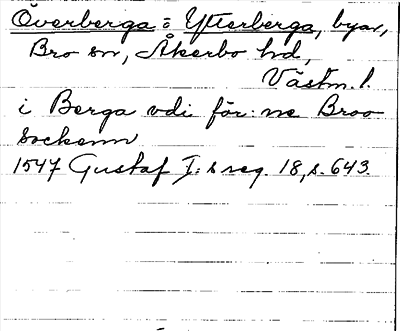 Överberga o Ytterberga, byar,
Bro sn, Åkerbo hd,
Västm. l.
i Berga vdi för:ne Broo
sockenn
1547 Gustaf I:s reg. 18, s. 643.